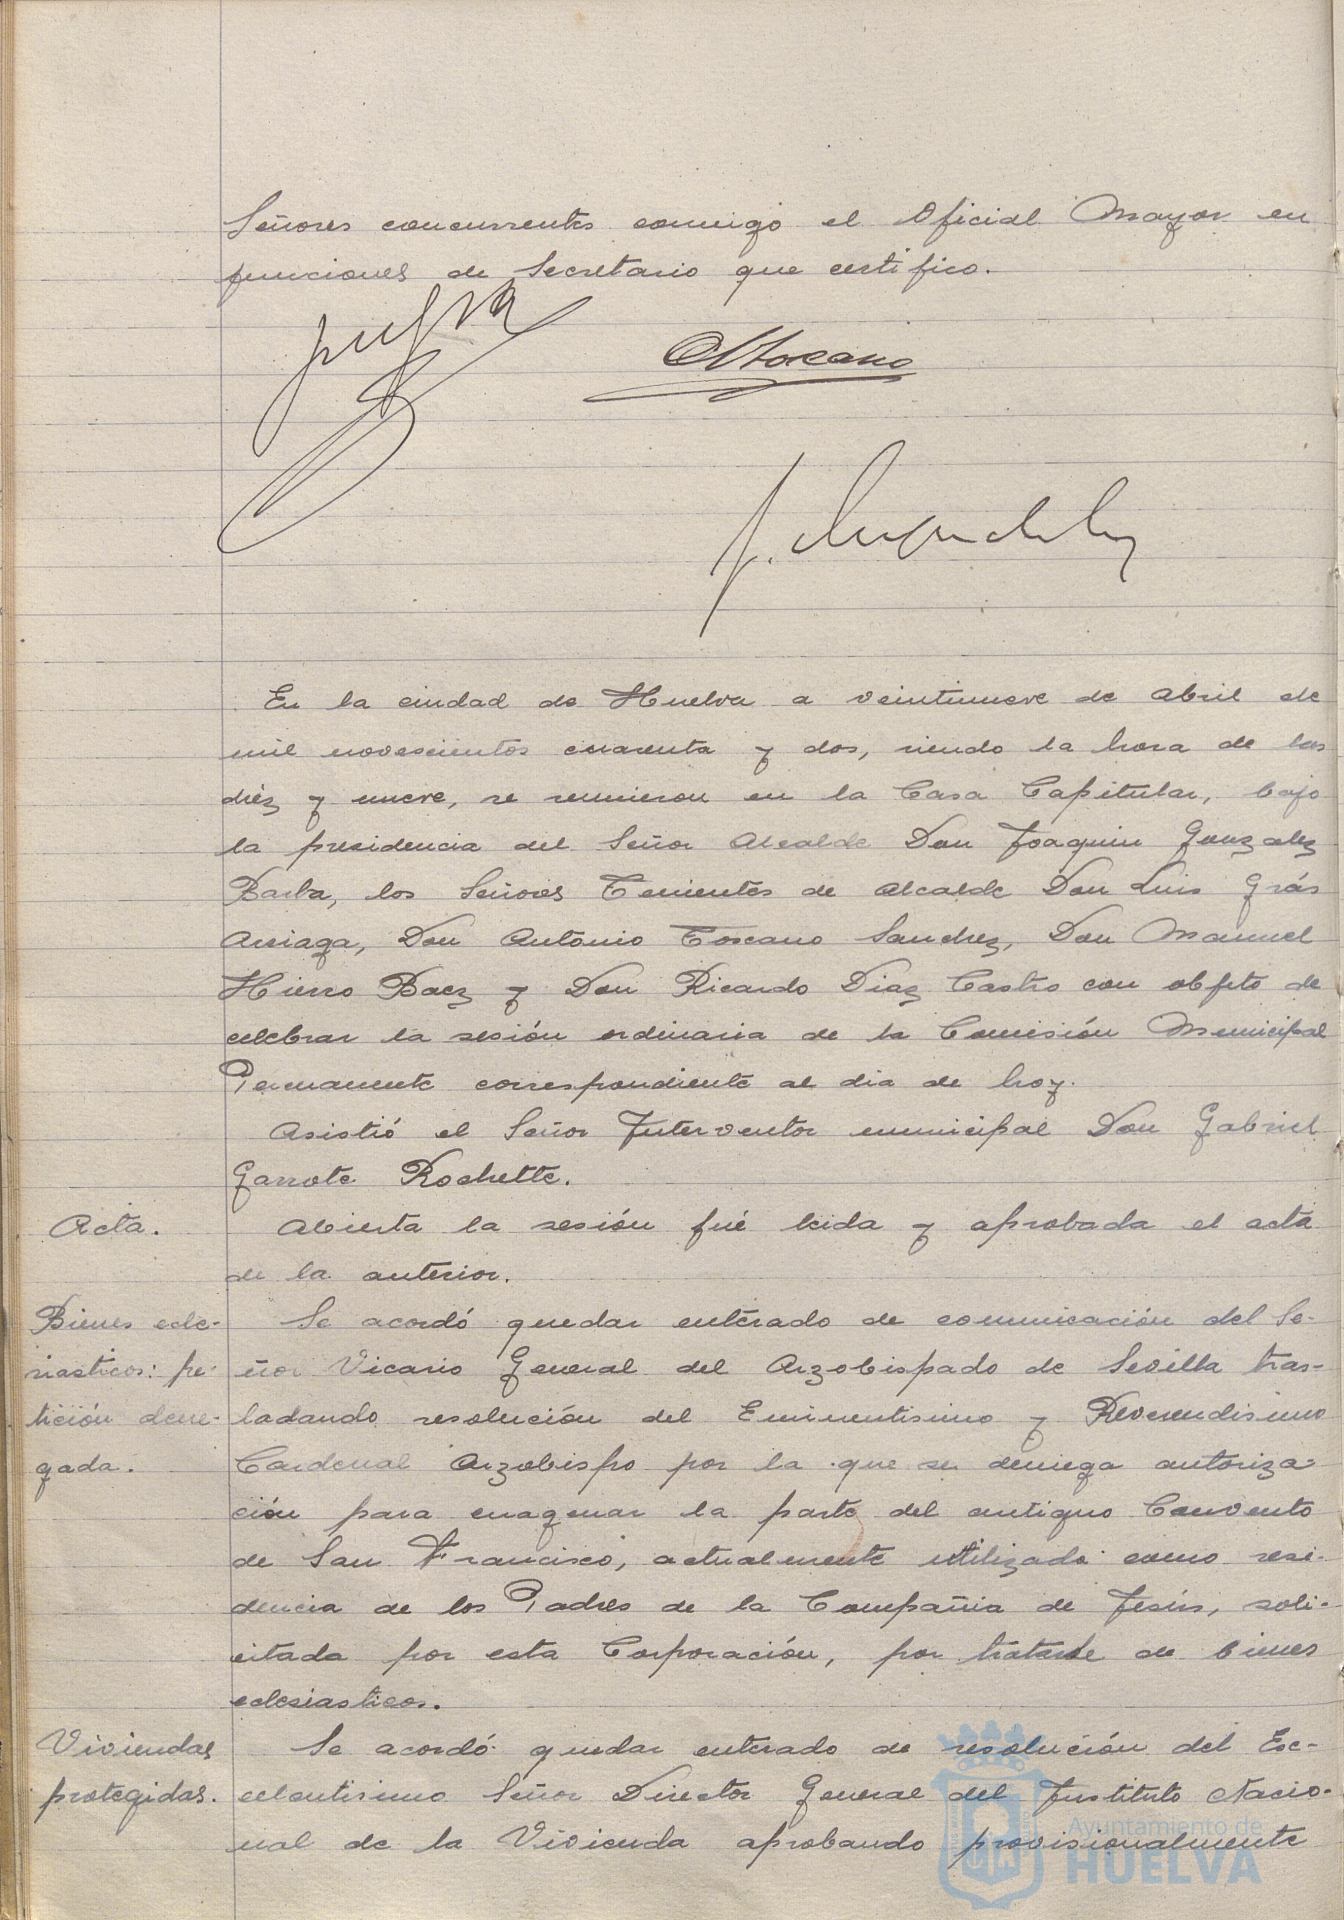 Señores concurrentes conmigo el Oficial Mayor en
funciones de Secretario que certifico.
A Toscano
En la ciudad de Huelva a veintinueve de abril de
mil novescientos cuarenta y dos, siendo la hora de las
diéz y nueve, se reunieron en la Casa Capitular, bajo
la presidencia del Señor Alcalde Don Joaquin Gonzalez
Barba, los Señores Tenientes de alcalde Don Luis Grás
Arriaga, Don Antonio Toscano Sanchez, Don Manuel
Hierro Baez y Don Ricardo Diaz Castro con objeto de
celebrar la sesión ordinaria de la Comisión Municipal
Permanente correspondiente al dia de hoy.
Asistió el Señor Interventor municipal Don Gabriel
Garrote Rochette.
Acta.
Abierta la sesión fué leida y aprobada el acta
de la anterior.
Bienes ecle-
siasticos: pe-
tición dene-
gada.
Se acordó quedar enterado de comunicación del Se-
ñor Vicario General del Arzobispado de Sevilla tras-
ladando resolución del Eminentisimo y Reverendisimo
Cardenal Arzobispo por la que se deniega autoriza-
ción para enagenar la parte del antiguo Convento
de San Francisco, actualmente utilizada como resi-
dencia de los Padres de la Compañia de Jesús, soli-
citada por esta Corporación, por tratarse de bienes
eclesiasticos.
Viviendas
protegidas.
Se acordó quedar enterado de resolución del Exc-
celentisimo Señor Director General del Instituto Nacio-
nal de la Vivienda aprobando provisionalmente
Ayuntamiento de
HUELVA